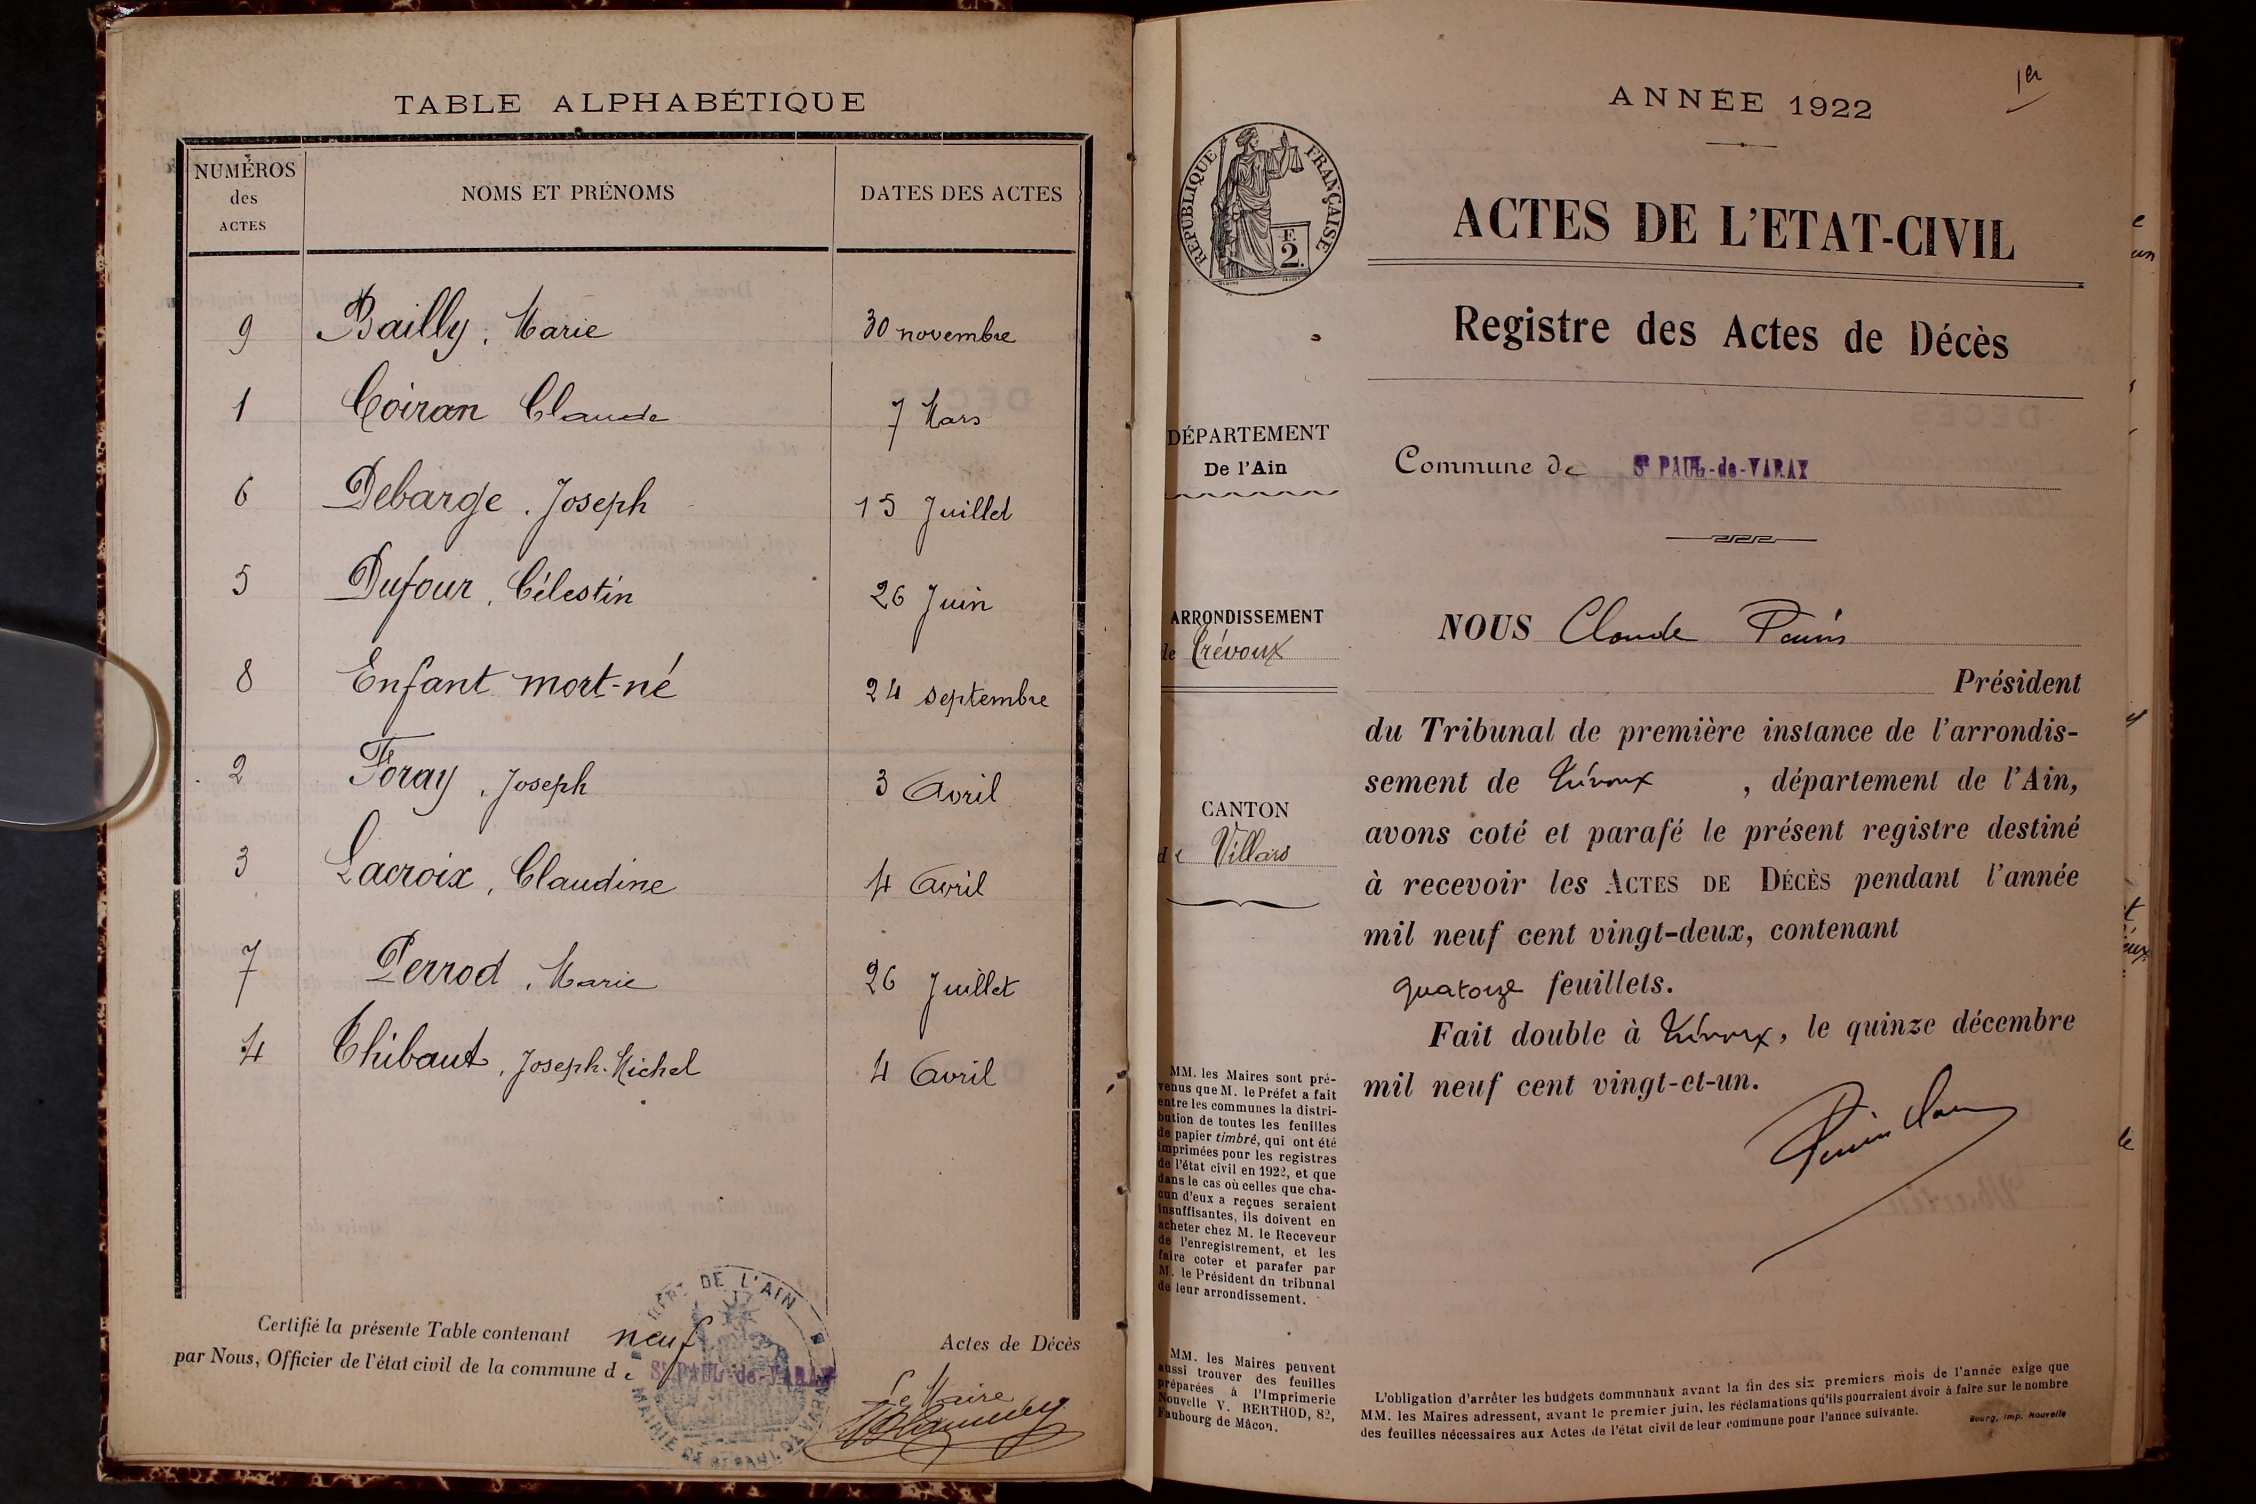 TABLE ALPHABÉTIQUE
NUMÉROS des ACTES NOMS ET PRÉNOMS DATES DES ACTES
9 Bailly, Marie 30 novembre
1 Coiran Claude 7 Mars
6 Debarge, Joseph 15 Juillet
5 Dufour, Célestin 26 Juin
8 Enfant mort-né 24 septembre
2 Foray, Joseph 3 Avril
3 Lacroix, Claudine 4 Avril
7 Perrod, Marie 26 Juillet
4 Thibaut, Joseph-Michel 4 Avril
Certifié la présente Table contenant neuf Actes de Décès
par Nous, Officier de l'état civil de la commune de St PAUL-de-VARAX
DÉPT DE L'AIN
MAIRIE DE ST PAUL DE VARAX
Le Maire
1er
ANNÉE 1922
RÉPUBLIQUE FRANÇAISE
F. 2.
ACTES DE L'ETAT-CIVIL
Registre des Actes de Décès
DÉPARTEMENT
De l'Ain
Commune de St PAUL-de-VARAX
ARRONDISSEMENT
de Trévoux
CANTON
de Villars
NOUS Claude
Président
du Tribunal de première instance de l'arrondis-
sement de Trévoux, département de l'Ain,
avons coté et parafé le présent registre destiné
à recevoir les ACTES DE DÉCÈS pendant l'année
mil neuf cent vingt-deux, contenant
quatorze feuillets.
Fait double à Trévoux, le quinze décembre
mil neuf cent vingt-et-un.
MM. les Maires sont pré-
venus que M. le Préfet a fait
entre les communes la distri-
bution de toutes les feuilles
de papier timbré, qui ont été
imprimées pour les registres
de l'état civil en 1922, et que
dans le cas où celles que cha-
cun d'eux a reçues seraient
insuffisantes, ils doivent en
acheter chez M. le Receveur
de l'enregistrement, et les
faire coter et parafer par
M. le Président du tribunal
de leur arrondissement.
MM. les Maires peuvent
aussi trouver des feuilles
préparées à l'Imprimerie
Nouvelle V. BERTHOD, 82,
Faubourg de Mâcon.
L'obligation d'arrêter les budgets communaux avant la fin des six premiers mois de l'année exige que
MM. les Maires adressent, avant le premier juin, les réclamations qu'ils pourraient avoir à faire sur le nombre
des feuilles nécessaires aux Actes de l'état civil de leur commune pour l'année suivante.
Bourg, Imp. Nouvelle